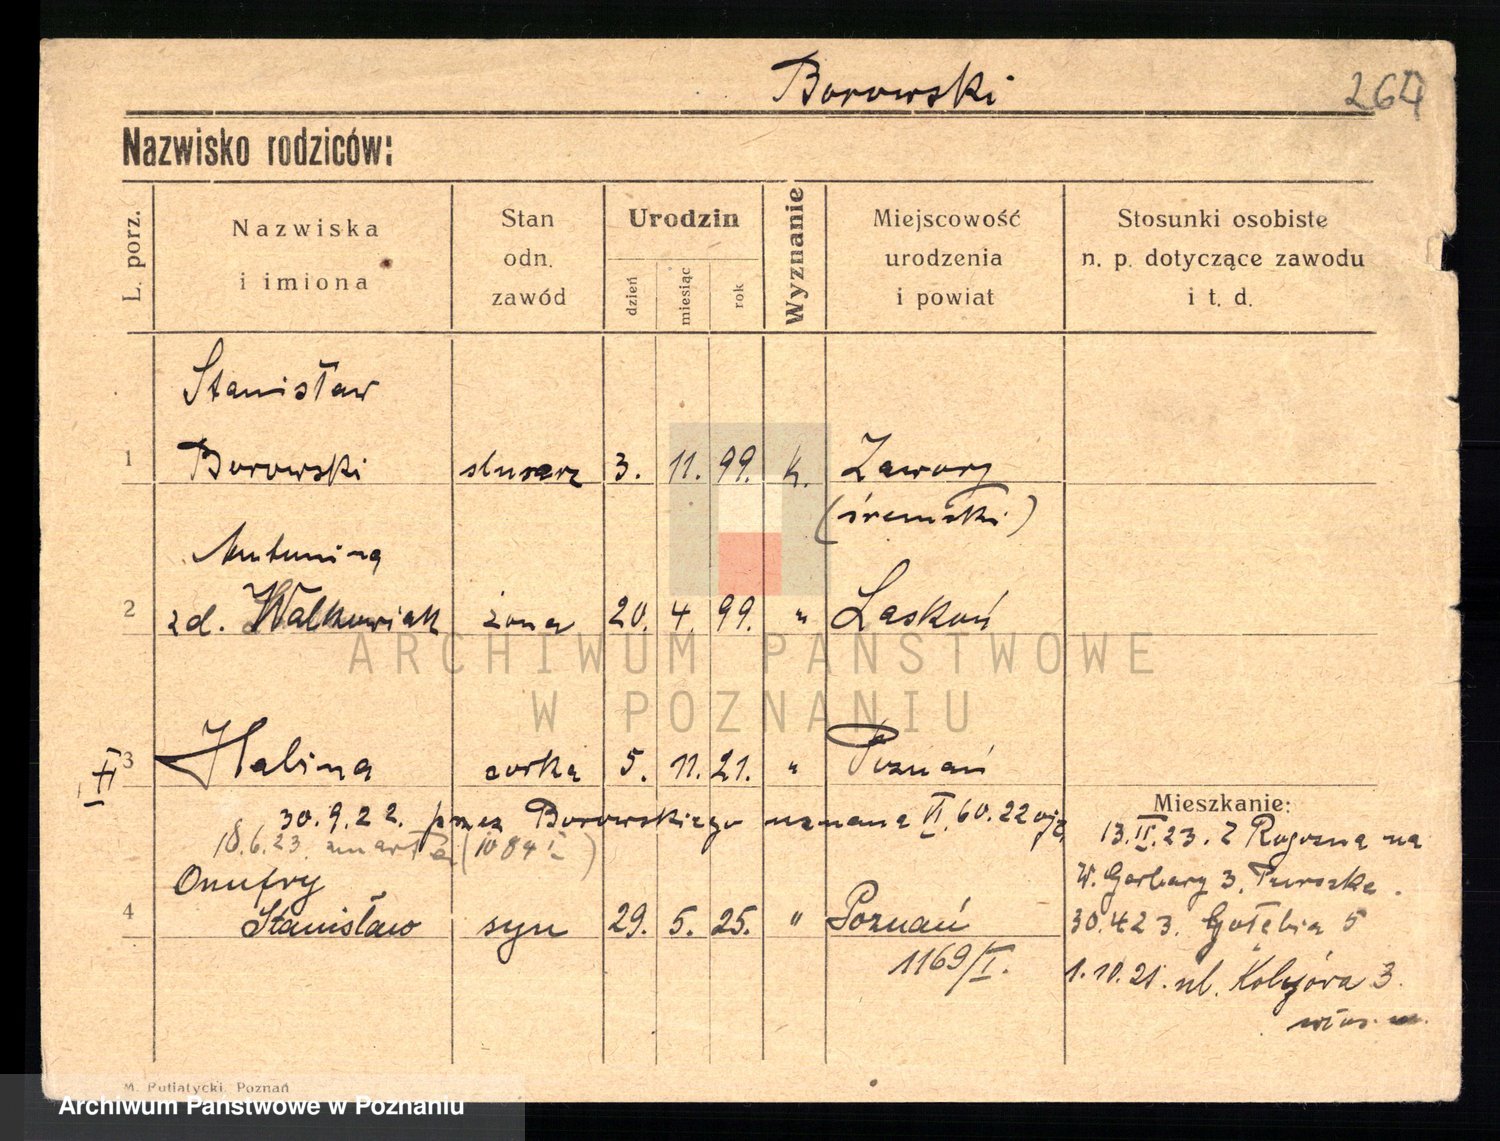 Borowski
264
Nazwisko rodziców:
L. porz.
Nazwiska
i imiona
Stan
odn.
zawód
Urodzin
dzień
miesiąc
rok
Wyznanie
Miejscowość
urodzenia
i powiat
Stosunki osobiste
n. p. dotyczące zawodu
i t. d.
Stanisław
1 Borowski slusarz 3. 11. 99. k. Zawory
(śremski)
Antonina
2 zd. Walkowiak żona 20. 4. 99. " Laskoń
3 Halina corka 5. 11. 21. " Poznań
II
30.9.22. przez Borowskiego uznana VI 60.22
18.6.23 zmarła (1084 I)
Mieszkanie:
13.II.23. Z Rogozna na
W. Garbary 3,
Onufry
4 Stanisław syn 29. 5. 25. " Poznań
1169/I.
30.4 23. Gołębia 5
1.10.21. ul. 3.